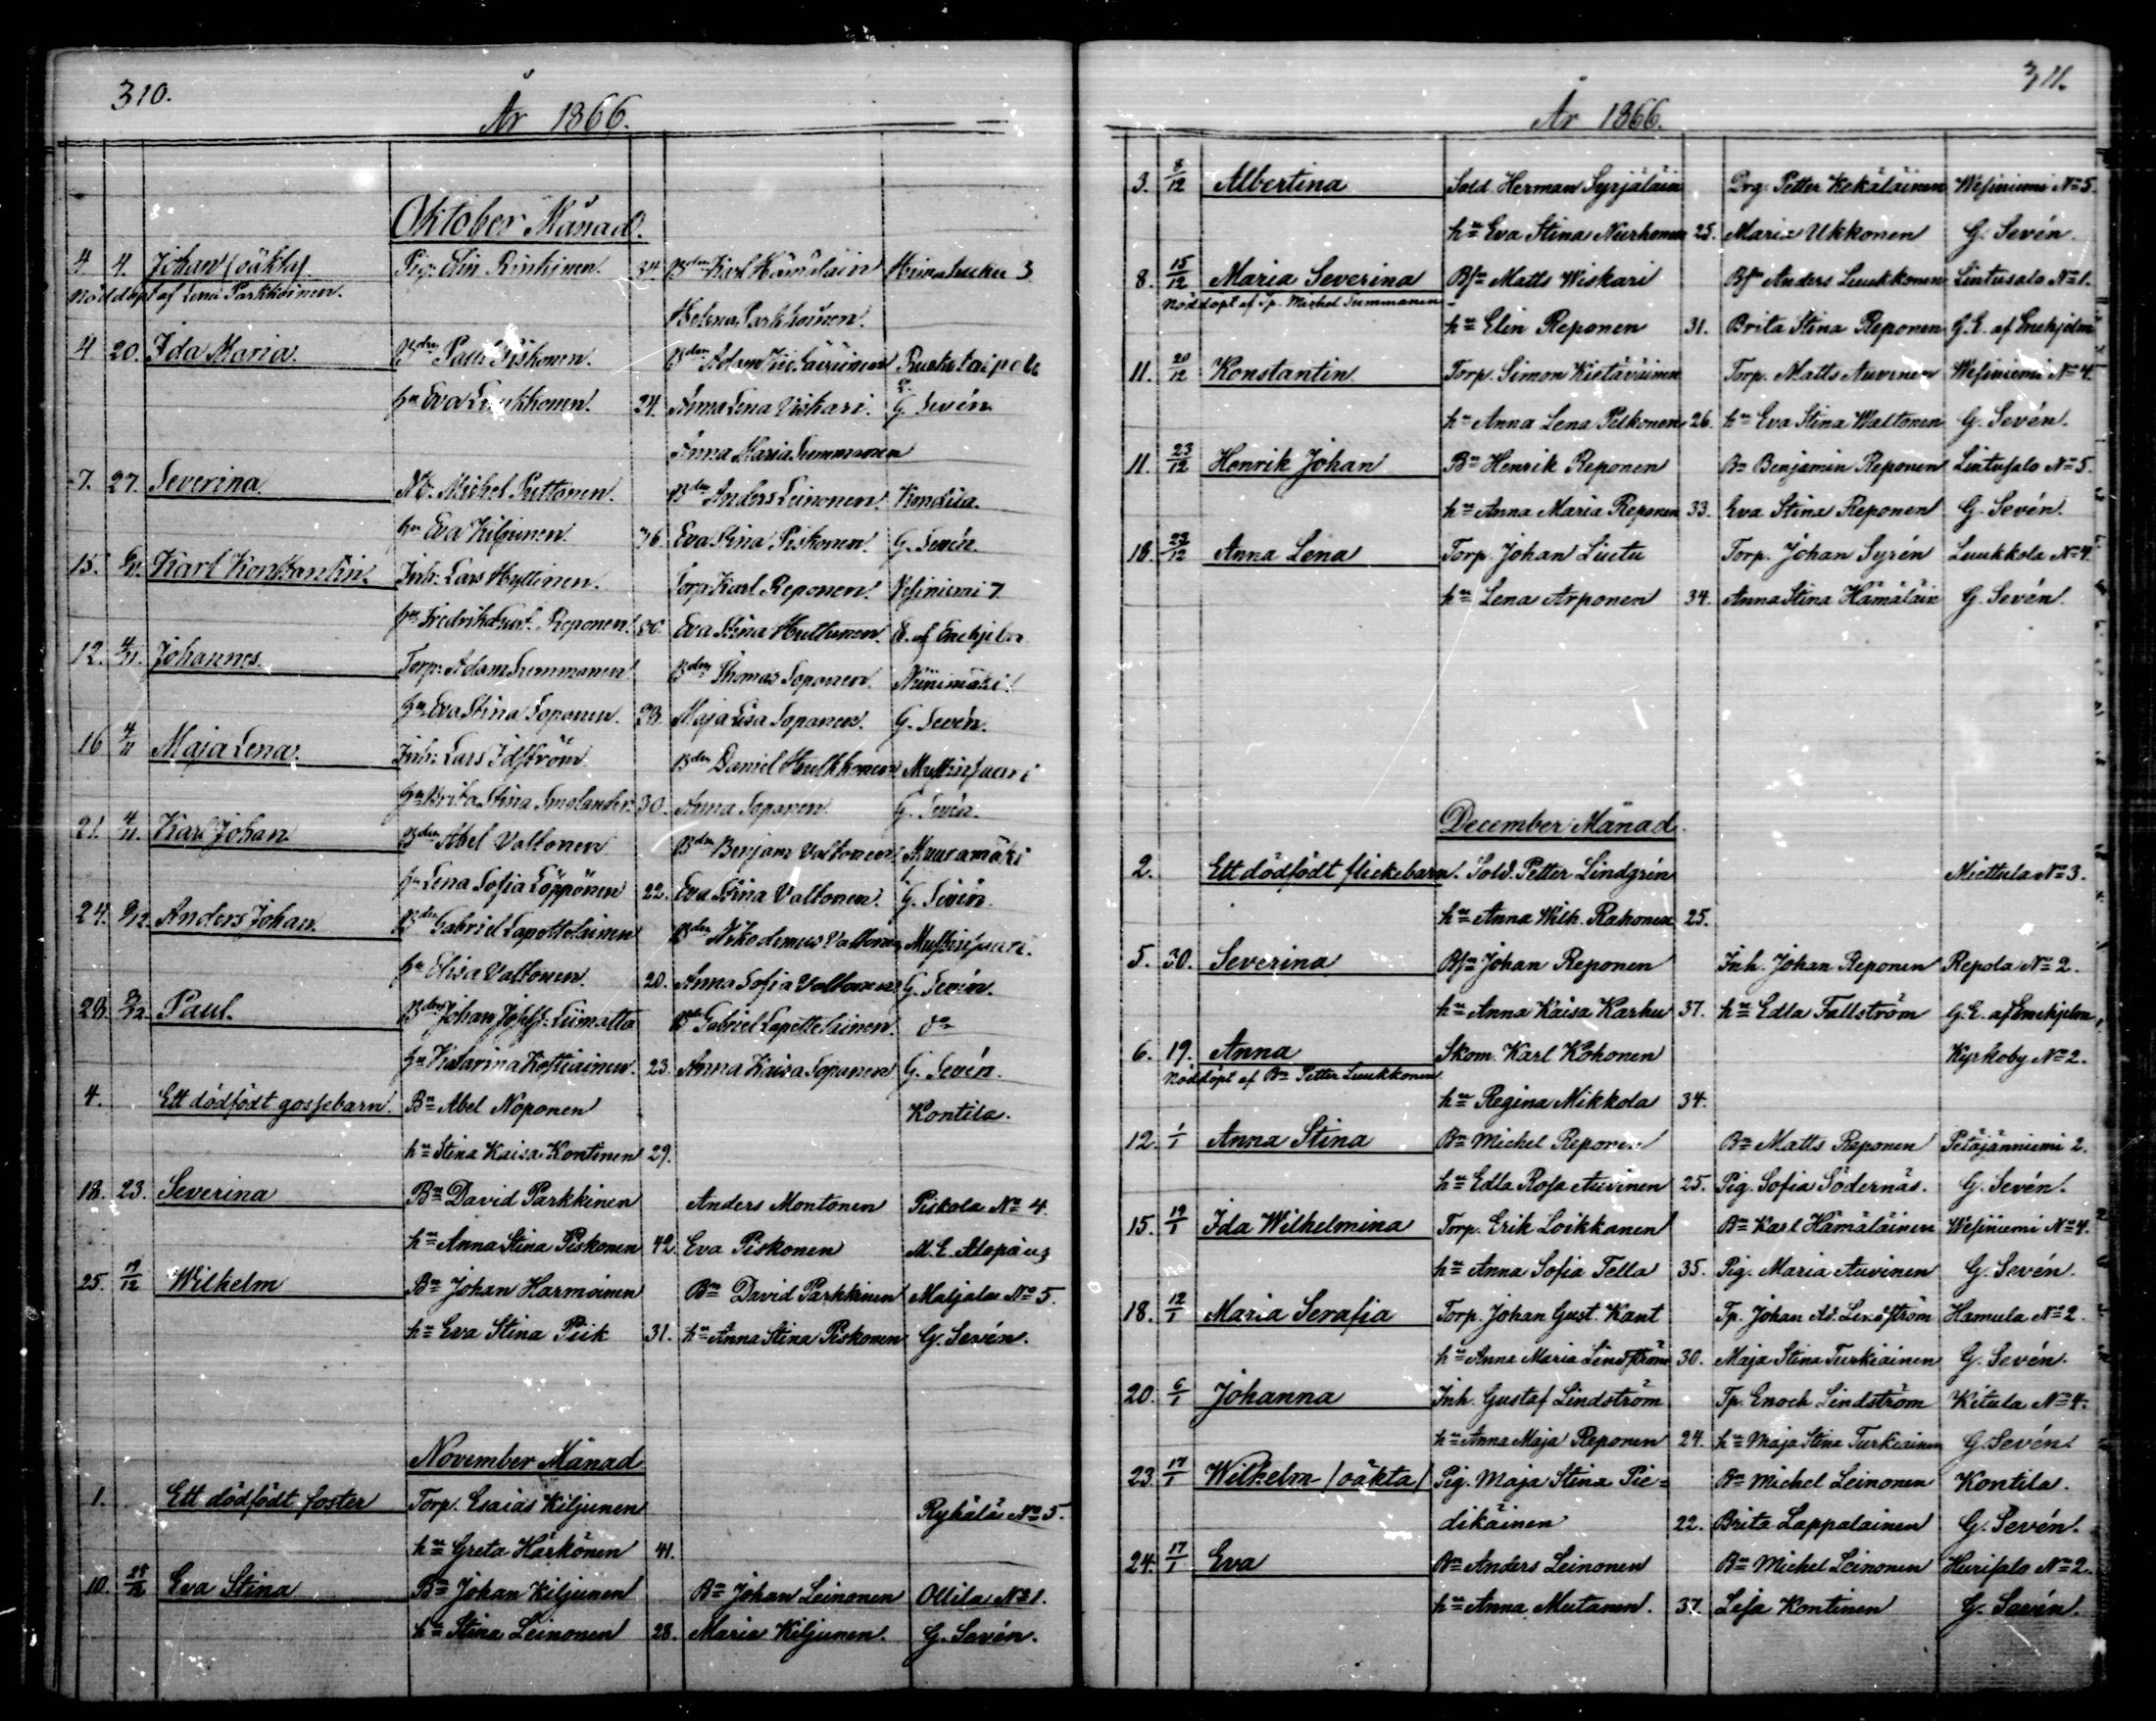 310.
År 1866.
Oktober Månad.
4 4. Johan (oäkta). Pig: Elin Rinkinen. 34 Bden Karl Hämäläin 3
Nöddöpt af Lena Parkkoinen.
Helena Parkkoinen.
4 20. Ida Maria. Bden Paul Piskonen. Bden Adam
hu Eva Luukkonen. 24. Anna Lena Viskari. G. Sevén
Anna Maria Summanen
7. 27. Severina. Michel Puttonen. Bden Anders Leinonen. Kondila.
hu Eva Kiljunen. 36. Eva Stina Piskonen. G. Sevén.
15. Karl Konstantin. Inh: Lars Hyttinen. Torp: Karl Reponen. Vesiniemi 7
hu Fredrika Reponen. 30. Eva Stina Huttunen. E. af Enehjelm
12. 4/11. Johannes. Torp: Adam Summanen Bden Thomas Soponen. Niinimäki.
hu Eva Stina Soponen. 28. Maja Lisa Sopanen. G. Sevén.
16 4/11 Maja Lena. Inh: Lars Idström Bden Daniel Hulkkonen
hu Brita Stina Smolander. 30. Anna Sopanen. G. Sevén.
21. 4/11. Karl Johan Bden Abel Valtonen Bden Benjam Valtonen Muuramäki
hu Lena Sofia Löppönen 22. Eva Stina Valtonen. G. Sevén.
24. 9/12. Anders Johan. Bden Gabriel Lapattolainen Bden Nikodemus Valtonen
hu Elisa Valtonen. 20. Anna Sofia Valtonen G. Sevén.
28. Paul. Bden Johan Josef: Liimatta Bden Gabriel Lapattelainen. do
hu Katarina Kostiainen. 23. Anna Kaisa Sopanen G. Sevén.
4. Ett dödfödt gossebarn. Bn Abel Noponen Kontila.
hu Stina Kaisa Kontinen 29.
18. 23. Severina Bn David Parkkinen Anders Montonen Piskola No 4.
hu Anna Stina Piskonen 42. Eva Piskonen M. E. Alopæus
25. 19/12 Wilhelm Bn Johan Harmoinen Bn David Parkkinen Matjala No 5.
hu Eva Stina Piik 31. hu Anna Stina Piskonen G. Sevén.
November Månad
1. Ett dödfödt foster Torp. Esaias Kiljunen Rykälä No 5.
hu Greta Härkönen 41.
10. 25/12 Eva Stina Bn Johan Kiljunen Bn Johan Leinonen Ollila No 1.
hu Stina Leinonen 28. Maria Kiljunen. G. Sevén.
311.
År 1866.
3. 8/12 Albertina Sold. Herman Syrjäläin Drg. Petter Kekäläinen Wesiniemi No 5.
hu Eva Stina Nurhonen 25. Maria Ukkonen G. Sevén.
8. 15/12 Maria Severina Bsn Matts Wiskari Bsn Anders Luukkonen Lintusalo No 1.
Nöddöpt af Tp. Michel Summanen
hu Elin Reponen 31. Brita Stina Reponen G. E. af Enehjelm
11. 20/12 Konstantin Torp. Simon Kistäväinen Torp. Matts Auvinen Wesiniemi No 4.
hu Anna Lena Pelkonen 26. hu Eva Stina Waltonen G. Sevén.
11. 23/12 Henrik Johan Bn Henrik Reponen Bn Benjamin Reponen Lintusalo No 5.
hu Anna Maria Reponen 33. Eva Stina Reponen G. Sevén.
18. 23/12 Anna Lena Torp. Johan Liutu Torp. Johan Syrén Luukkola No 4.
hu Lena Arponen 34. Anna Stina Hämäläin G. Sevén.
December Månad.
2. Ett dödfödt flickebarn. Sold. Petter Lindgrén Miettula No 3.
hu Anna Wilh. Rahonen 25.
5. 30. Severina Bsn Johan Reponen Inh. Johan Reponen Repola No 2.
hu Anna Kaisa Karhu 37. hu Edla Fallström G. E. af Enehjelm
6. 19. Anna Skom. Karl Kohonen Kyrkoby No 2.
Nöddöpt af Bn Petter Luukkonen
hu Regina Mikkola 34.
12. 1/1 Anna Stina Bn Michel Reponen Bn Matts Reponen Petäjänniemi 2.
hu Edla Rosa Auvinen 25. Pig. Sofia Södernäs. G. Sevén.
15. 19/1 Ida Wilhelmina Torp. Erik Loikkanen Bn Karl Hämäläinen Wesiniemi No 4.
hu Anna Sofia Tella 35. Pig. Maria Auvinen G. Sevén.
18. 12/1 Maria Serafia Torp. Johan Gust. Kant Tp. Johan Ad. Lindström Hamula No 2.
hu Anna Maria Lindström 30. Maja Stina Turkiainen G. Sevén.
20. 6/1 Johanna Inh. Gustaf Lindström Tp. Enoch Lindström Kitula No 4.
hu Anna Maja Reponen 24. hu Maja Stina Turkiainen G. Sevén.
23. 17/1 Wilhelm (oäkta) Pig. Maja Stina Pie= Bn Michel Leinonen Kontila.
dikäinen 22. Brita Lappalainen G. Sevén.
24. 17/1 Eva Bn Anders Leinonen Bn Michel Leinonen Hurisalo No 2.
hu Anna Mutanen. 37. Lisa Kontinen G. Sevén.